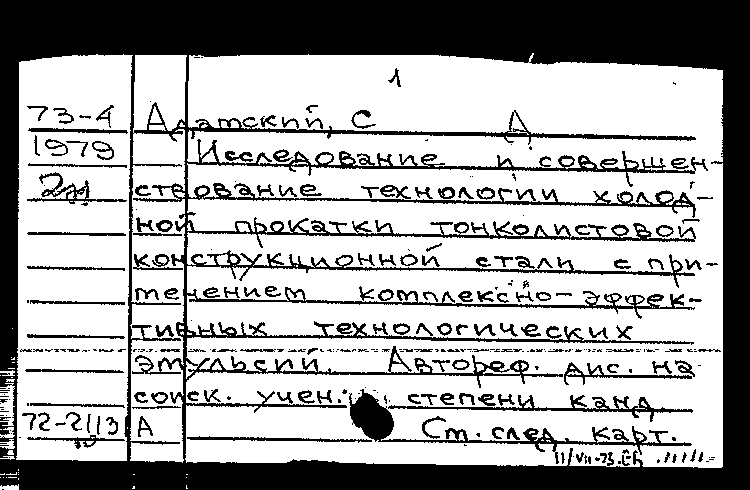 1
73-4 Адамский, С Д
1979 Исследование и совершен-
2дд ствование технологии холод-
ной прокатки тонколистовой
конструкционной стали с при-
менением комплексно-эффек-
тивных технологических
эмульсий. Автореф. дис. на
соиск. учен. степени канд.
72-2113 А См. след. карт.
11/VII-73.